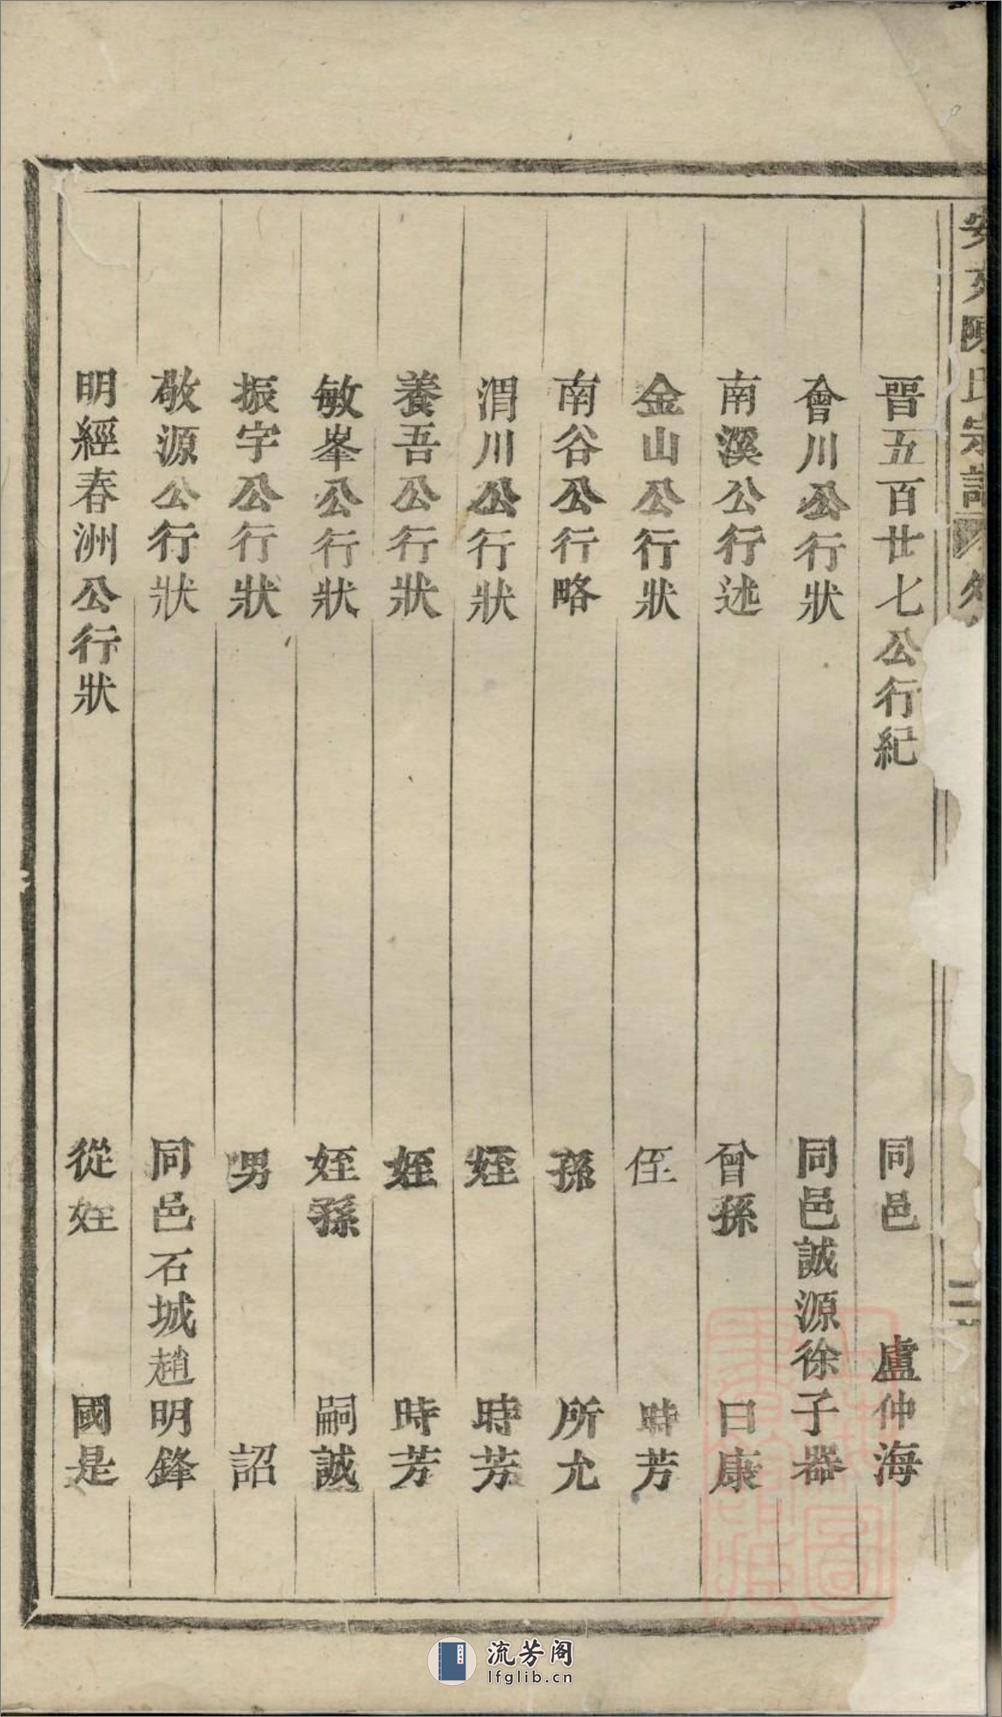 安文陳氏宗譜
晋五百廿七公行紀 同邑 盧仲海
會川公行狀 同邑誠源徐子器
南溪公行述 曾孫 曰康
金山公行狀 侄 時芳
南谷公行略 孫 所允
渭川公行狀 姪 時芳
養吾公行狀 姪 時芳
敏峯公行狀 姪孫 嗣誠
振宇公行狀 男 詔
敬源公行狀 同邑石城趙明鋒
明經春洲公行狀 從姪 國是
流芳阁
lfglib.cn